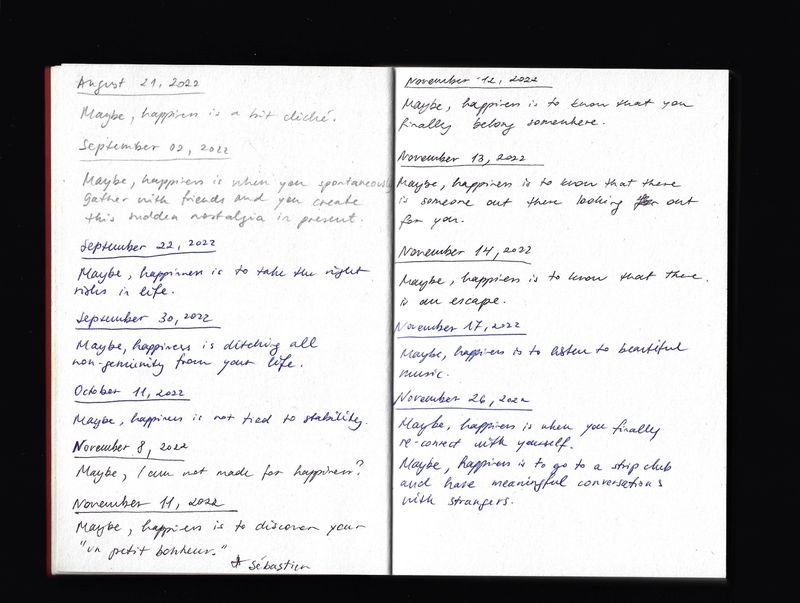 August 21, 2022
Maybe, happiness is a bit cliché.
September 02, 2022
Maybe, happiness is when you spontaneously
gather with friends and you create
this sudden nostalgia in present.
September 22, 2022
Maybe, happinness is to take the right
risks in life.
September 30, 2022
Maybe, happiness is ditching all
non-genuinity from your life.
October 11, 2022
Maybe, happiness is not tied to stability.
November 8, 2022
Maybe, I am not made for happiness?
November 11, 2022
Maybe, happiness is to discover your
"un petit bonheur."
Sébastien
November 12, 2022
Maybe, happiness is to know that you
finally belong somewhere.
November 13, 2022
Maybe, happiness is to know that there
is someone out there looking out
for you.
November 14, 2022
Maybe, happiness is to know that there
is an escape.
November 17, 2022
Maybe, happiness is to listen to beautiful
music.
November 26, 2022
Maybe, happiness is when you finally
re-connect with yourself.
Maybe, happiness is to go to a strip club
and have meaningful conversations
with strangers.